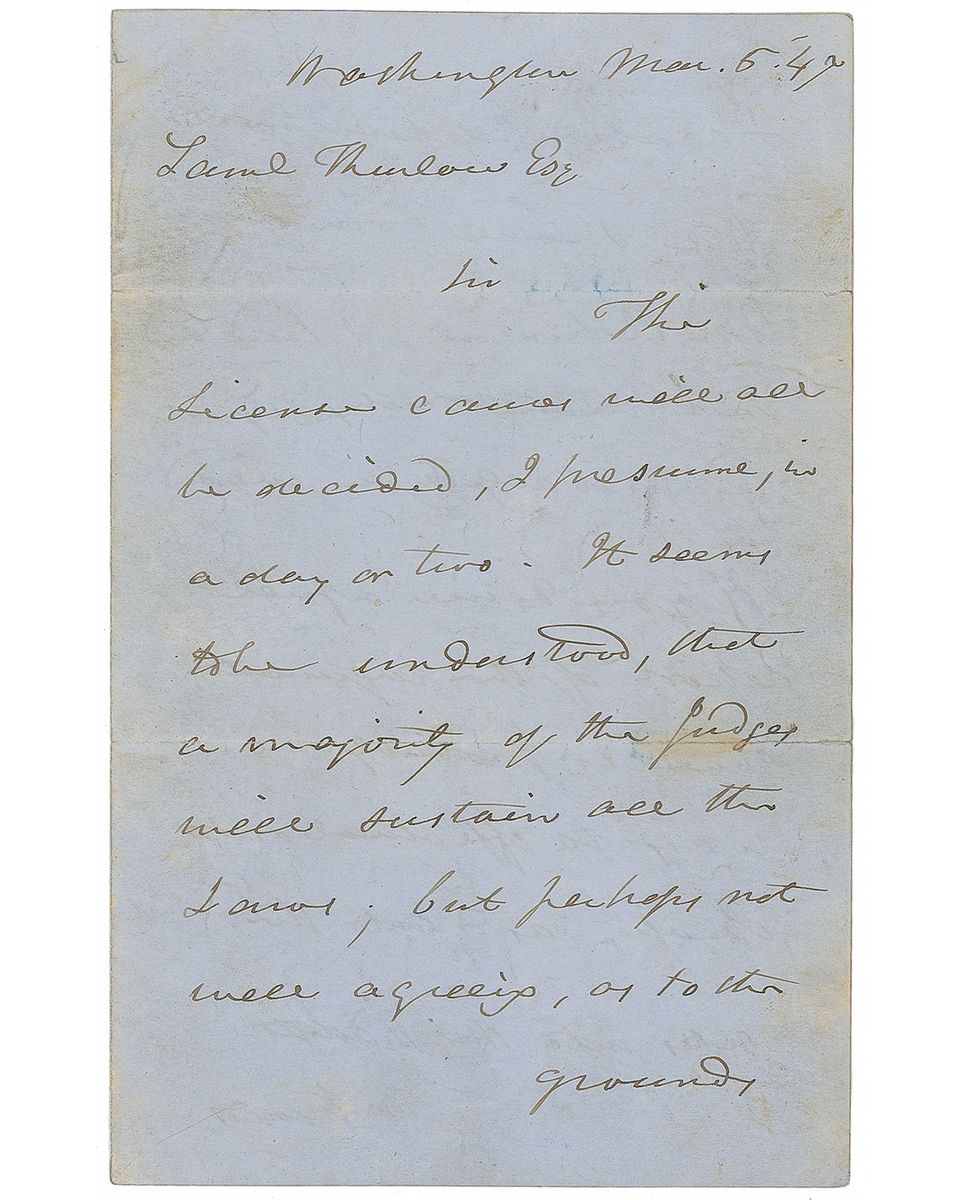 Washington Mar. 5. '47
Saml Thurlow Esq
Sir
The
License causes will all
be decided, I presume, in
a day or two. It seems
to be understood, that
a majority of the Judges
will sustain all the
Laws; but perhaps not
well agreeing, as to the
grounds